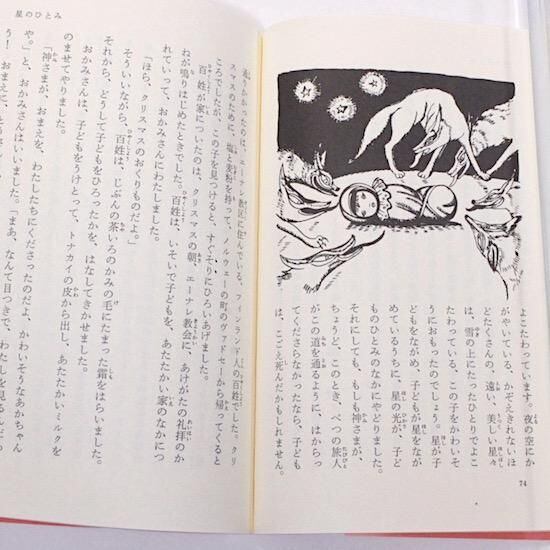 よこたわっています。夜の空にか
がやいている、かぞえきれないほ
どたくさんの、遠い、美しい星々
は、雪の上にたったひとりでよこ
たわっている、この子をかわいそ
うにおもったのでしょう。星が子
どもをながめ、子どもが星をなが
めているうちに、星の光が、子ど
ものひとみのなかにやどりました。
それにしても、もしも神さまが、
ちょうど、このとき、べつの旅人
がこの道を通るように、はからっ
てくださらなかったなら、子ども
は、こごえ死んだかもしれません。
74
星のひとみ
通りかかったのは、エーナレ教区に住んでいる、フィンランド人の百姓でした。クリ
スマスのために、塩と麦粉を持って、ノルウェーの町のヴァドセーから帰ってくると
ころでしたが、この子を見つけると、すぐそりにひろいあげました。
百姓が家についたのは、クリスマスの朝、エーナレ教会に、あけがたの礼拝のか
ねが鳴りはじめたときでした。百姓は、いそいで子どもを、あたたかい家のなかにつ
れていって、おかみさんにわたしました。
「ほら、クリスマスのおくりものだよ。」
そういいながら、百姓は、じぶんの茶いろのかみの毛にたまった霜をはらいました。
それから、どうして子どもをひろったかを、はなしてきかせました。
おかみさんは、子どもをうけとって、トナカイの皮から出し、あたたかいミルクを
のませてやりました。
「神さまが、おまえを、わたしたちにくださったのだよ、かわいそうなあかちゃん
や。」と、おかみさんはいいました。「まあ、なんて目つきで、わたしを見るんだろ
う！